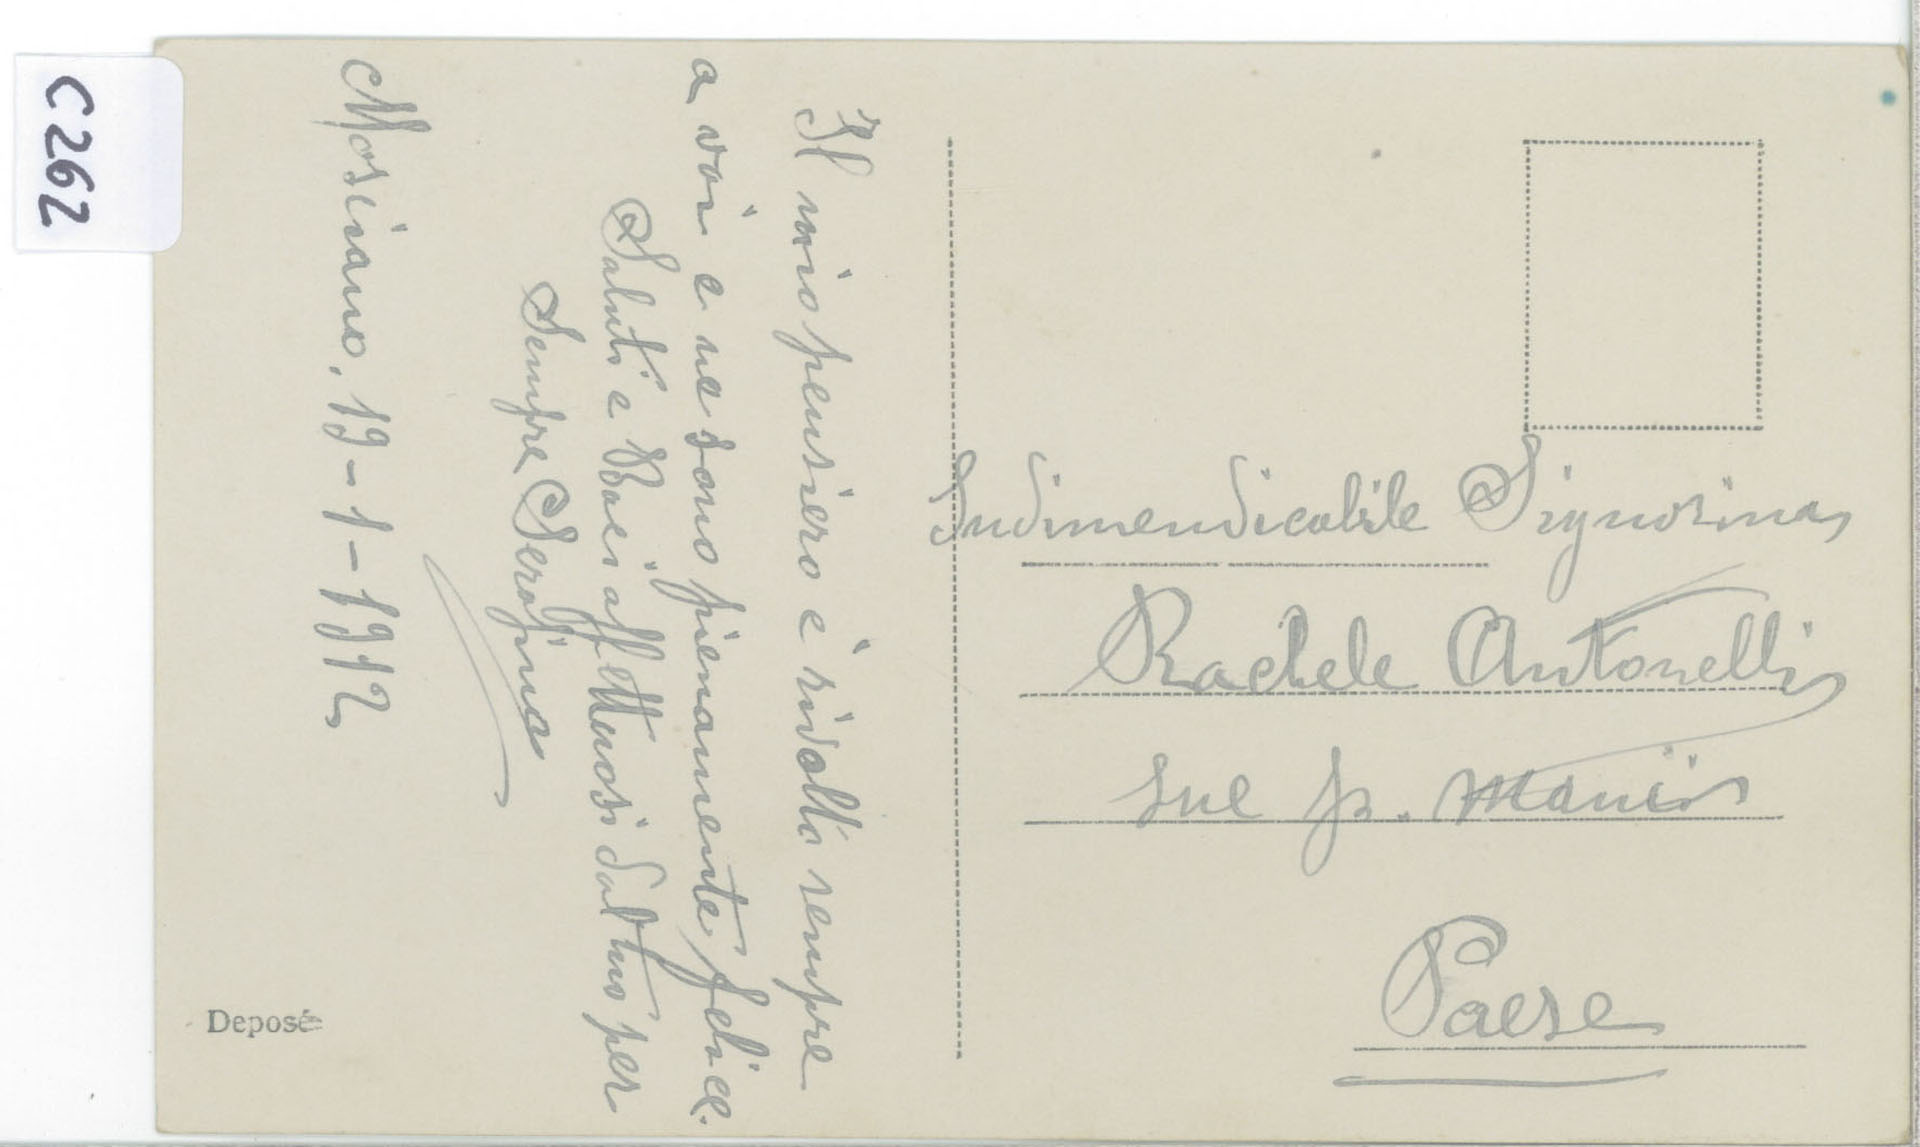 C262
Il mio pensiero è rivolto sempre
a voi e ne sono pienamente felice.
Saluti e Baci affettuosi dal tuo per
Sempre Serafino
Mosciano, 19-1-1912
Indimendicabile Signorina
Rachele Antonelli
sue p. Manii
Paese
Deposé